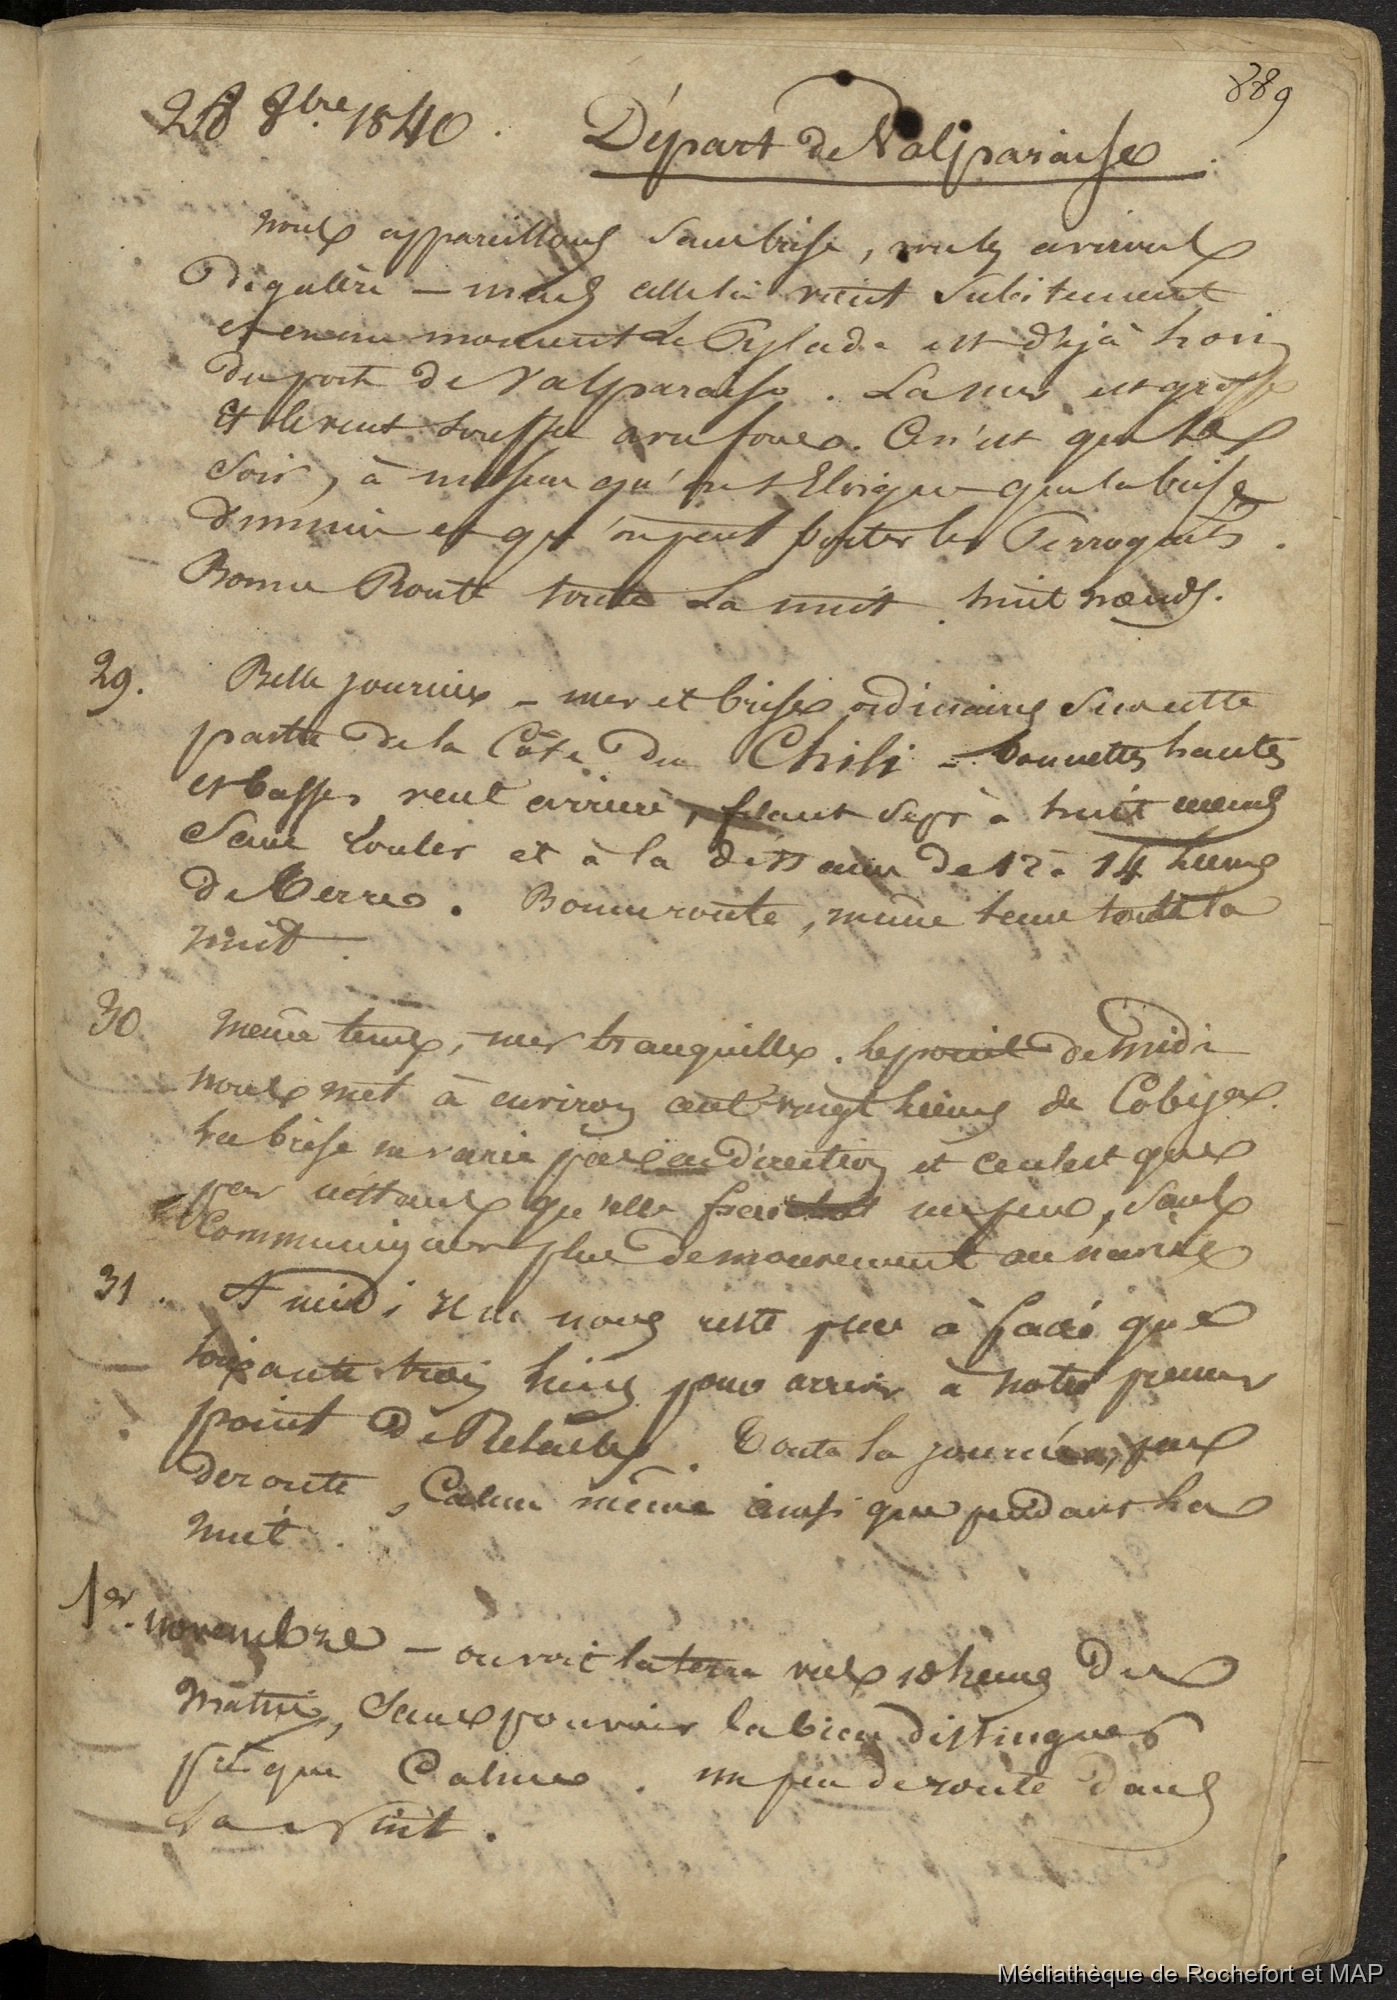 889
28 8bre 1840. Départ de Valparaiso.
nous appareillons sans brise, mais avirons
de galère — mais celle-ci vient subitement
et en un moment le Pylade est déjà loin
du port de Valparaiso. La mer est grosse
Et le vent souffle avec force. Ce n'est que le
soir, à mesure qu'on s'Eloigne que la brise
diminue et qu'on peut porter les Perroquets.
Bonne Route toute La nuit. huit nœuds.
29. Belle journée — mer et brise ordinaires sur cette
partie de la Côte du Chili — bonnettes hautes
et basses vent arrière, filant sept à huit nœuds
Sans rouler et à la distance de 12 à 14 lieues
de Terre. Bonne route, même tems toute la
nuit.
30. même tems, mer tranquille. le point de midi
nous met à environ cent vingt lieues de Cobija.
La brise ne varie pas en direction et ce n'est que
par instans qu'elle fraichit un peu, sans
Communiquer plus de mouvement au navire
31. A midi il ne nous reste plus à faire que
soixante trois lieues pour arriver à notre premier
point de Relache. Toute la journée, pas
de route, Calme même ainsi que pendant La
nuit.
1er. novembre — on voit la terre vers 10 heures du
matin, Sans pouvoir la bien distinguer
presque Calme. un peu de route dans
La Nuit.
Médiathèque de Rochefort et MAP